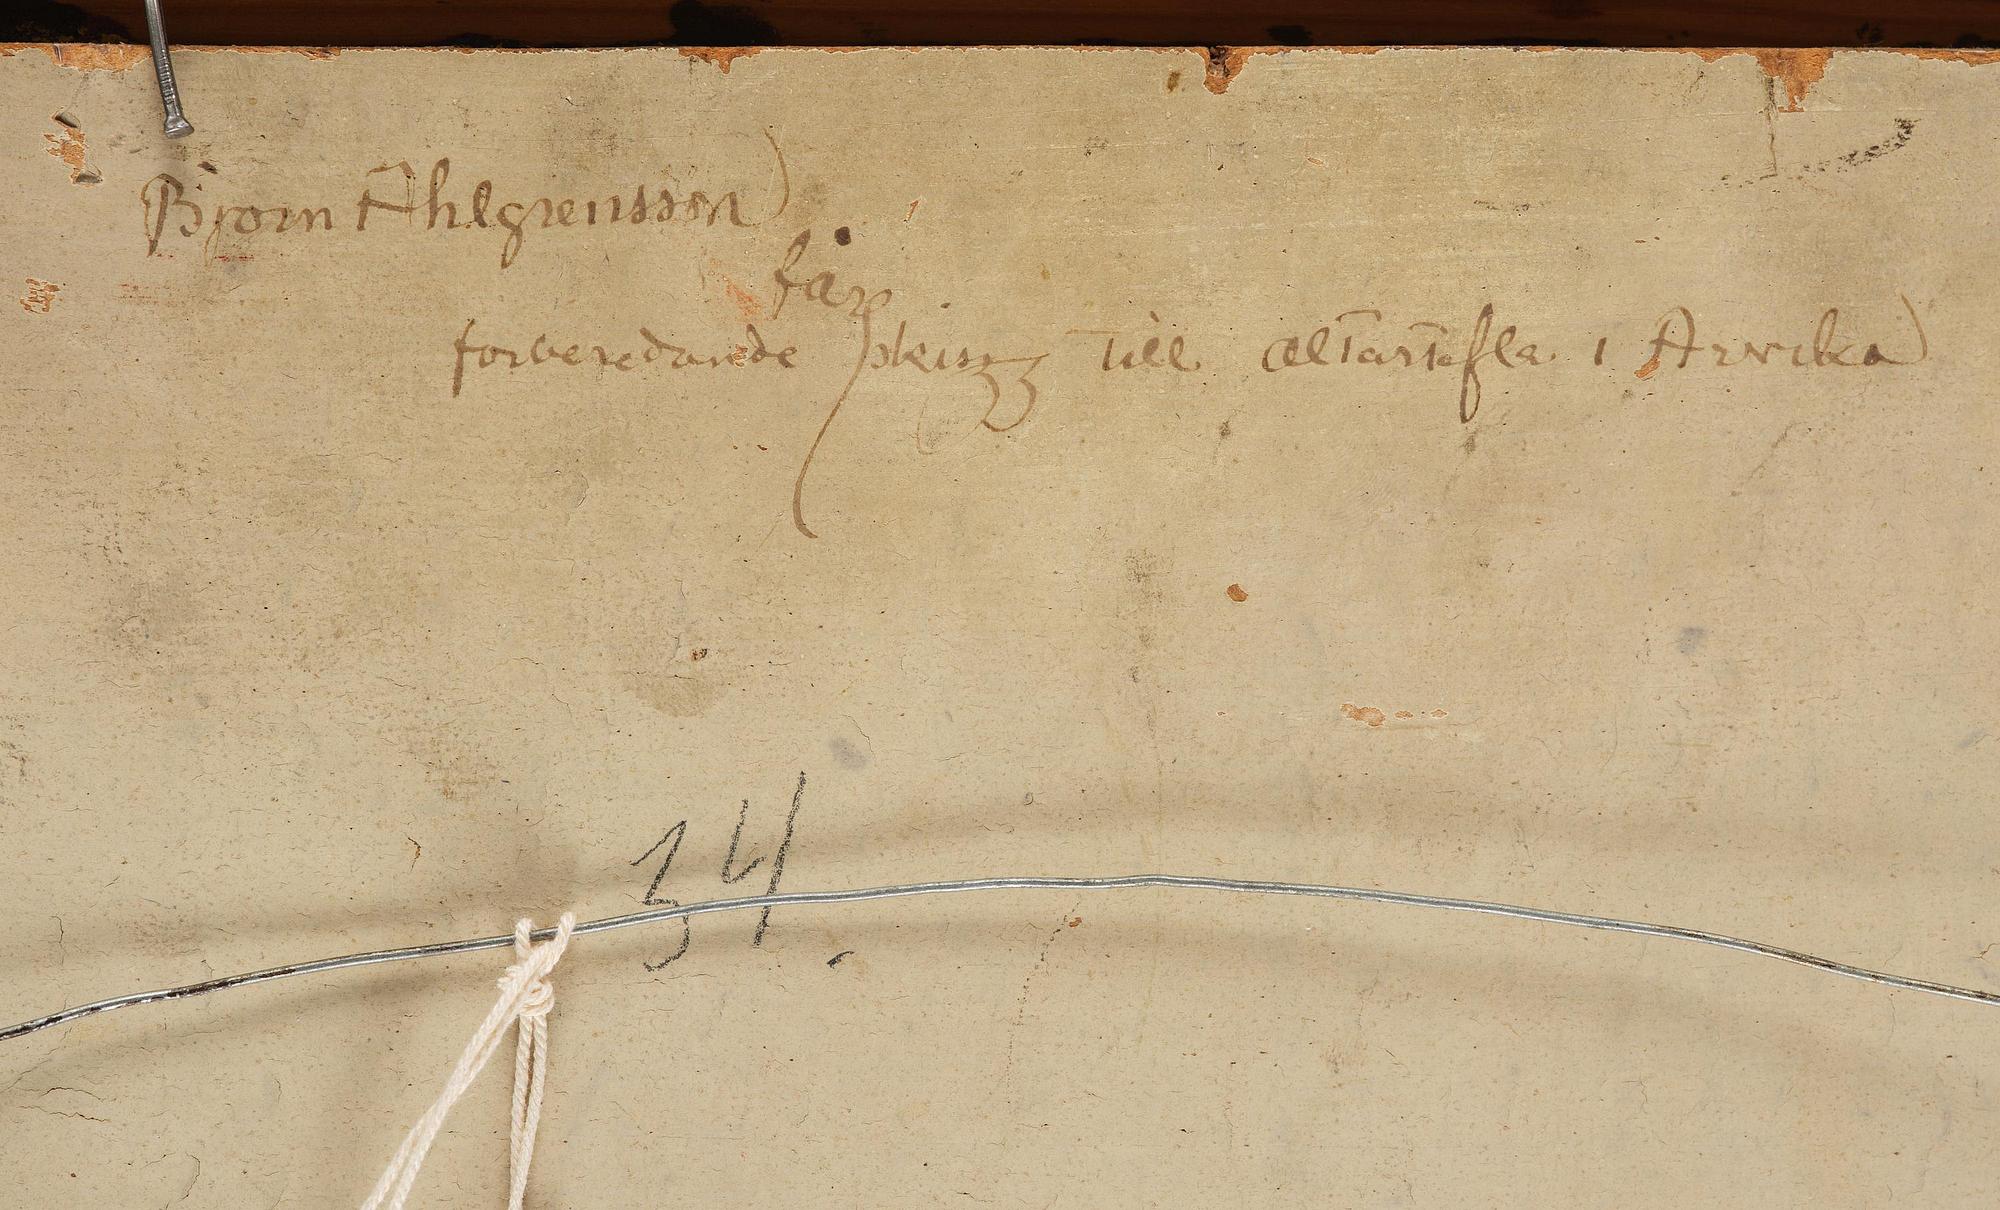 Bjorn Ahlgrensson)
får
forberedande skizz till altartafla i Arvika)
34.